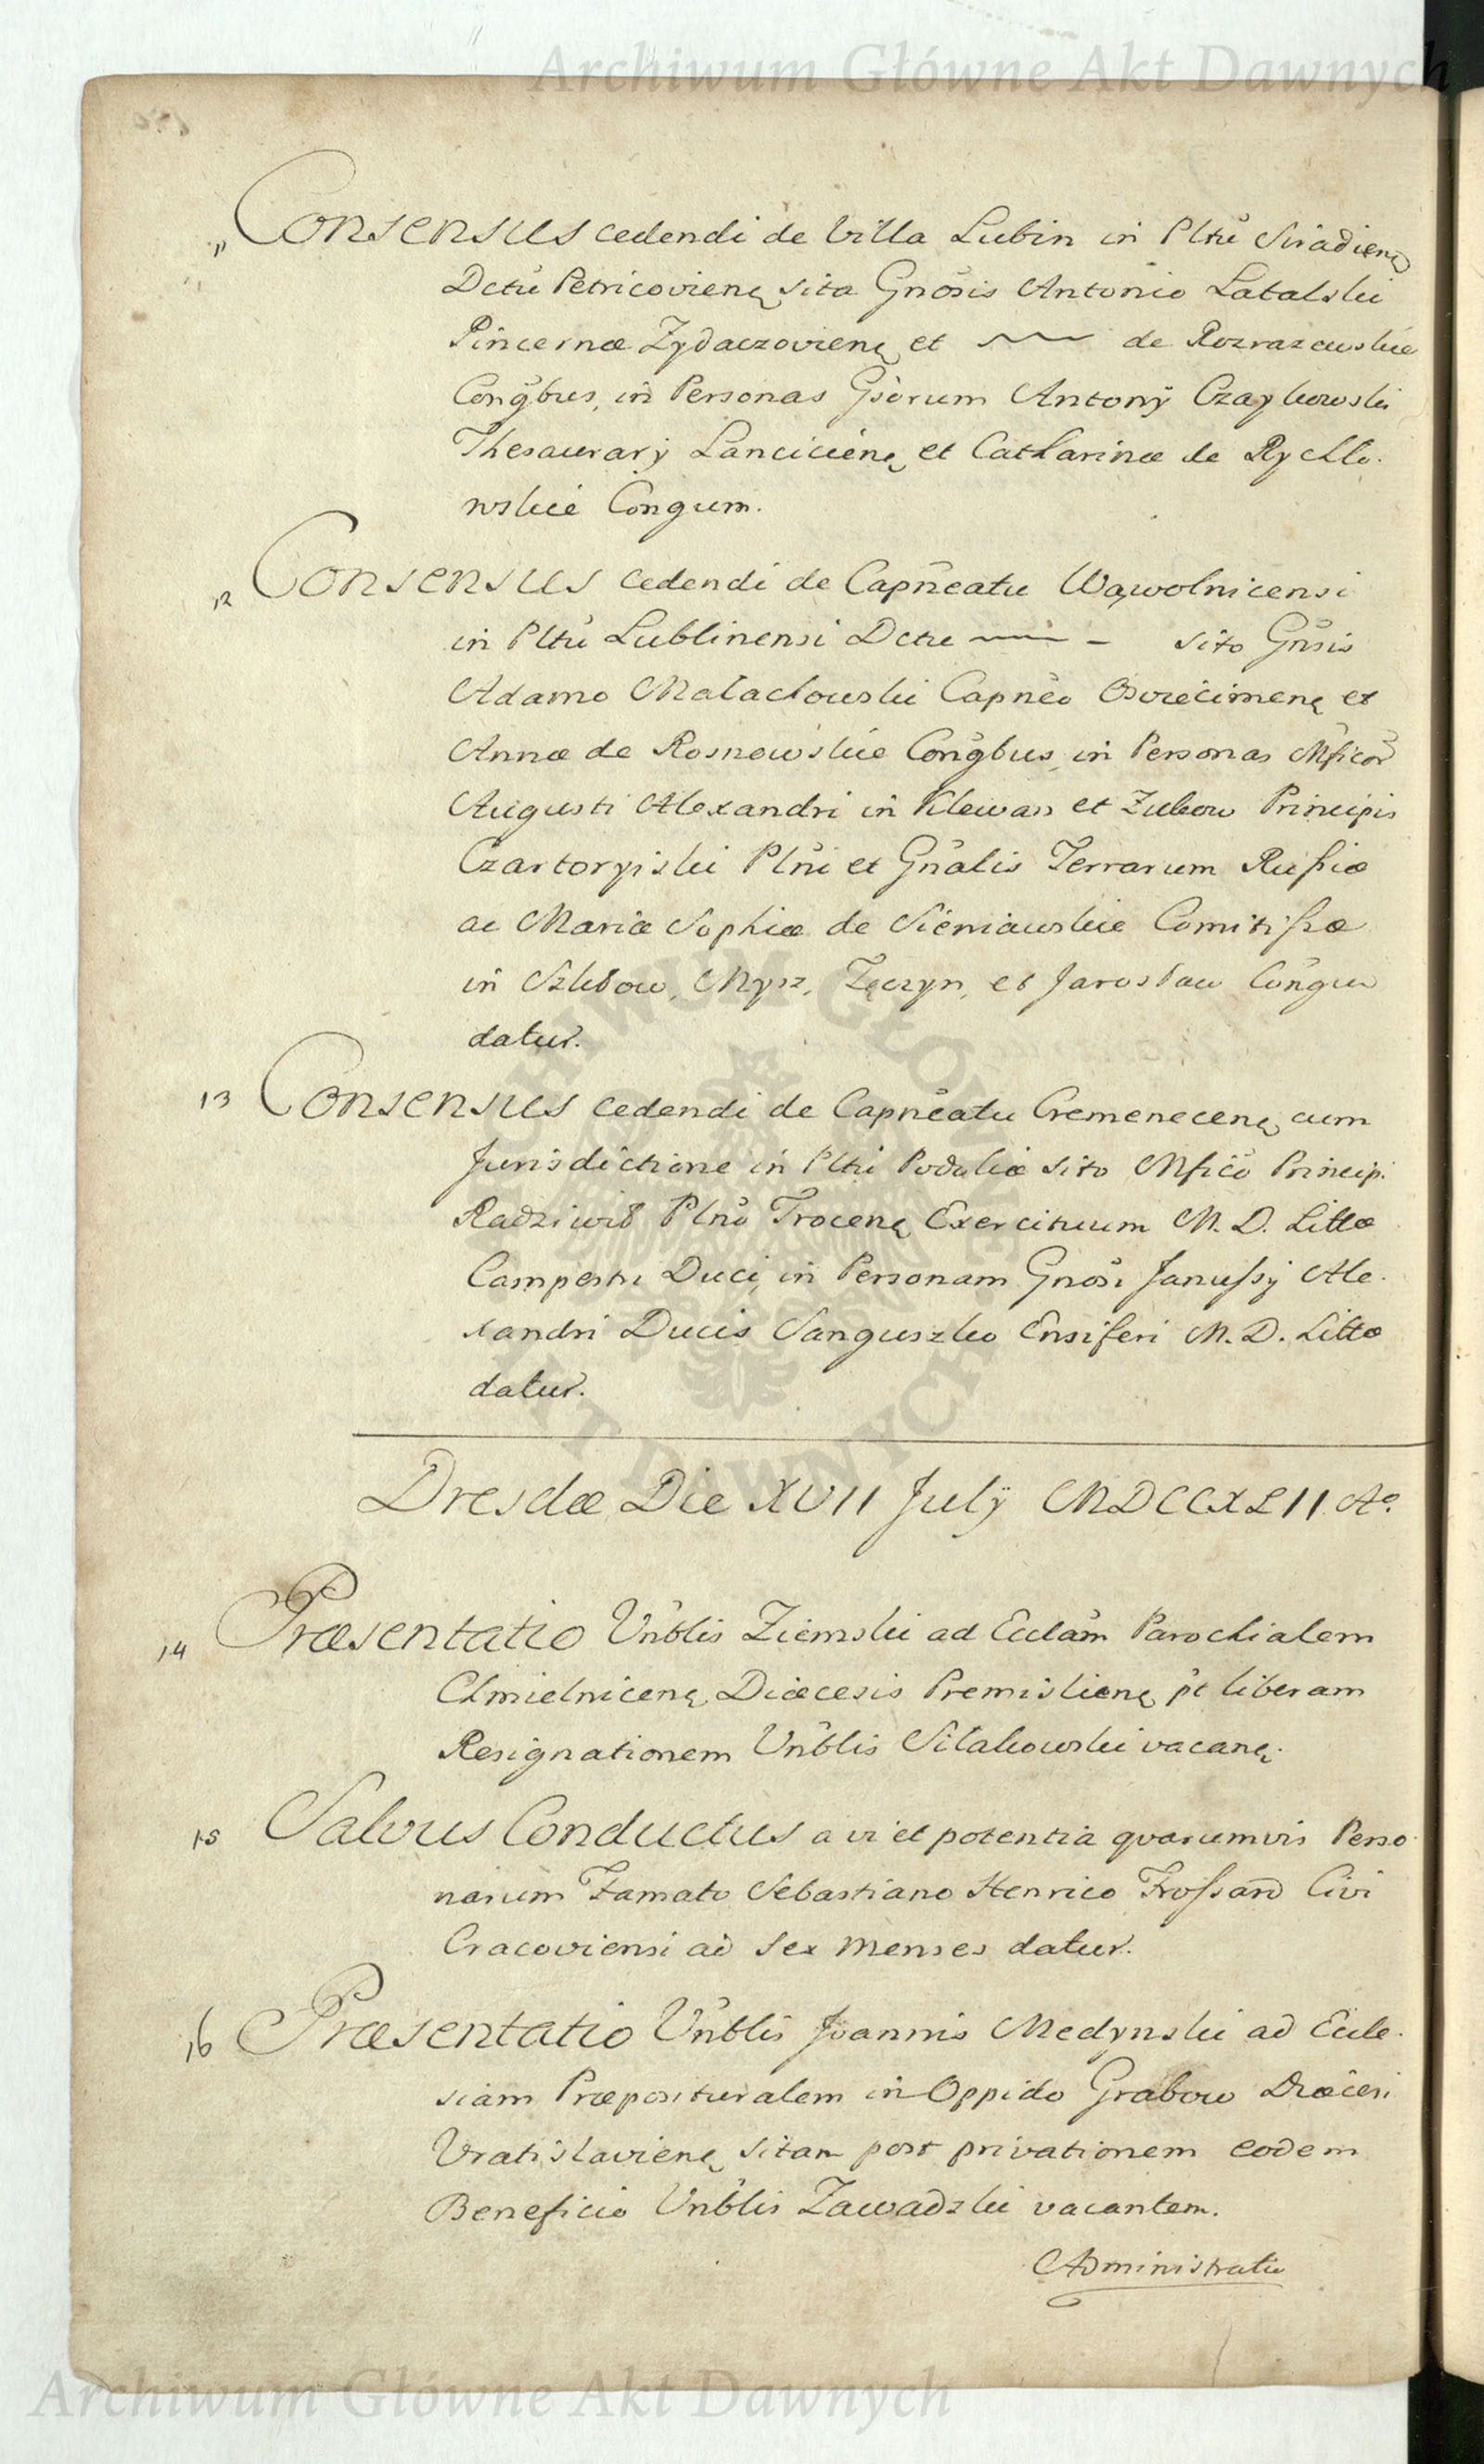 Archiwum Główne Akt Dawnych
11 Consensus cedendi de Villa Lubin in Pltu Siradieng
Dctu Petricovieng sita Gnosis Antonio Latalski
Pincernæ Zydaczovieng et de Rozrazewskie
Congbus, in Personas Gsorum Antonÿ Czaykowski
Thesaurarÿ Lancicieng et Catharinæ de Rychlo-
wskie Congum.
12 Consensus cedendi de Capneatu Wąwolnicensi
in Pltu Lublinensi Dctu — sito Gnsis
Adamo Malachowski Capneo Oswiecimeng et
Annæ de Rosnowskie Congbus in Personas Mficor
Augusti Alexandri in Klewan et Zukow Principis
Czartoryiski Plni et Gnalis Terrarum Russiæ
ac Mariæ Sophiæ de Sieniawskie Comitissæ
in Szkłow, Mysz, Tęczyn, et Jarosław Congu
datur.
13 Consensus cedendi de Capneatu Cremeneceng cum
Jurisdictione in Pltu Podoliæ sito Mfico Princip.
Radziwił Plno Troceng Exercituum M. D. Litt̄æ
Campestri Duci, in Personam Gnosi Janussÿ Ale-
xandri Ducis Sanguszko Ensiferi M. D. Littæ
datur.
Dresdæ Die XVII Julÿ MDCCXLII Ao.
14 Præsentatio Vnblis Ziemski ad Ecclam Parochialem
Chmielniceng Diæcesis Premislieng pt liberam
Resignationem Vnblis Silakowski vacang.
15 Salvus Conductus a vi et potentia qvarumvis Perso-
narum Famato Sebastiano Henrico Frossard Civi
Cracoviensi ad sex menses datur.
16 Præsentatio Vnblis Joannis Medynski ad Eccle-
siam Præposituralem in Oppido Grabow Diæcesi
Vratislavieng sitam post privationem eodem
Beneficio Vnblis Zawadzki vacantem.
Administratio
Archiwum Główne Akt Dawnych